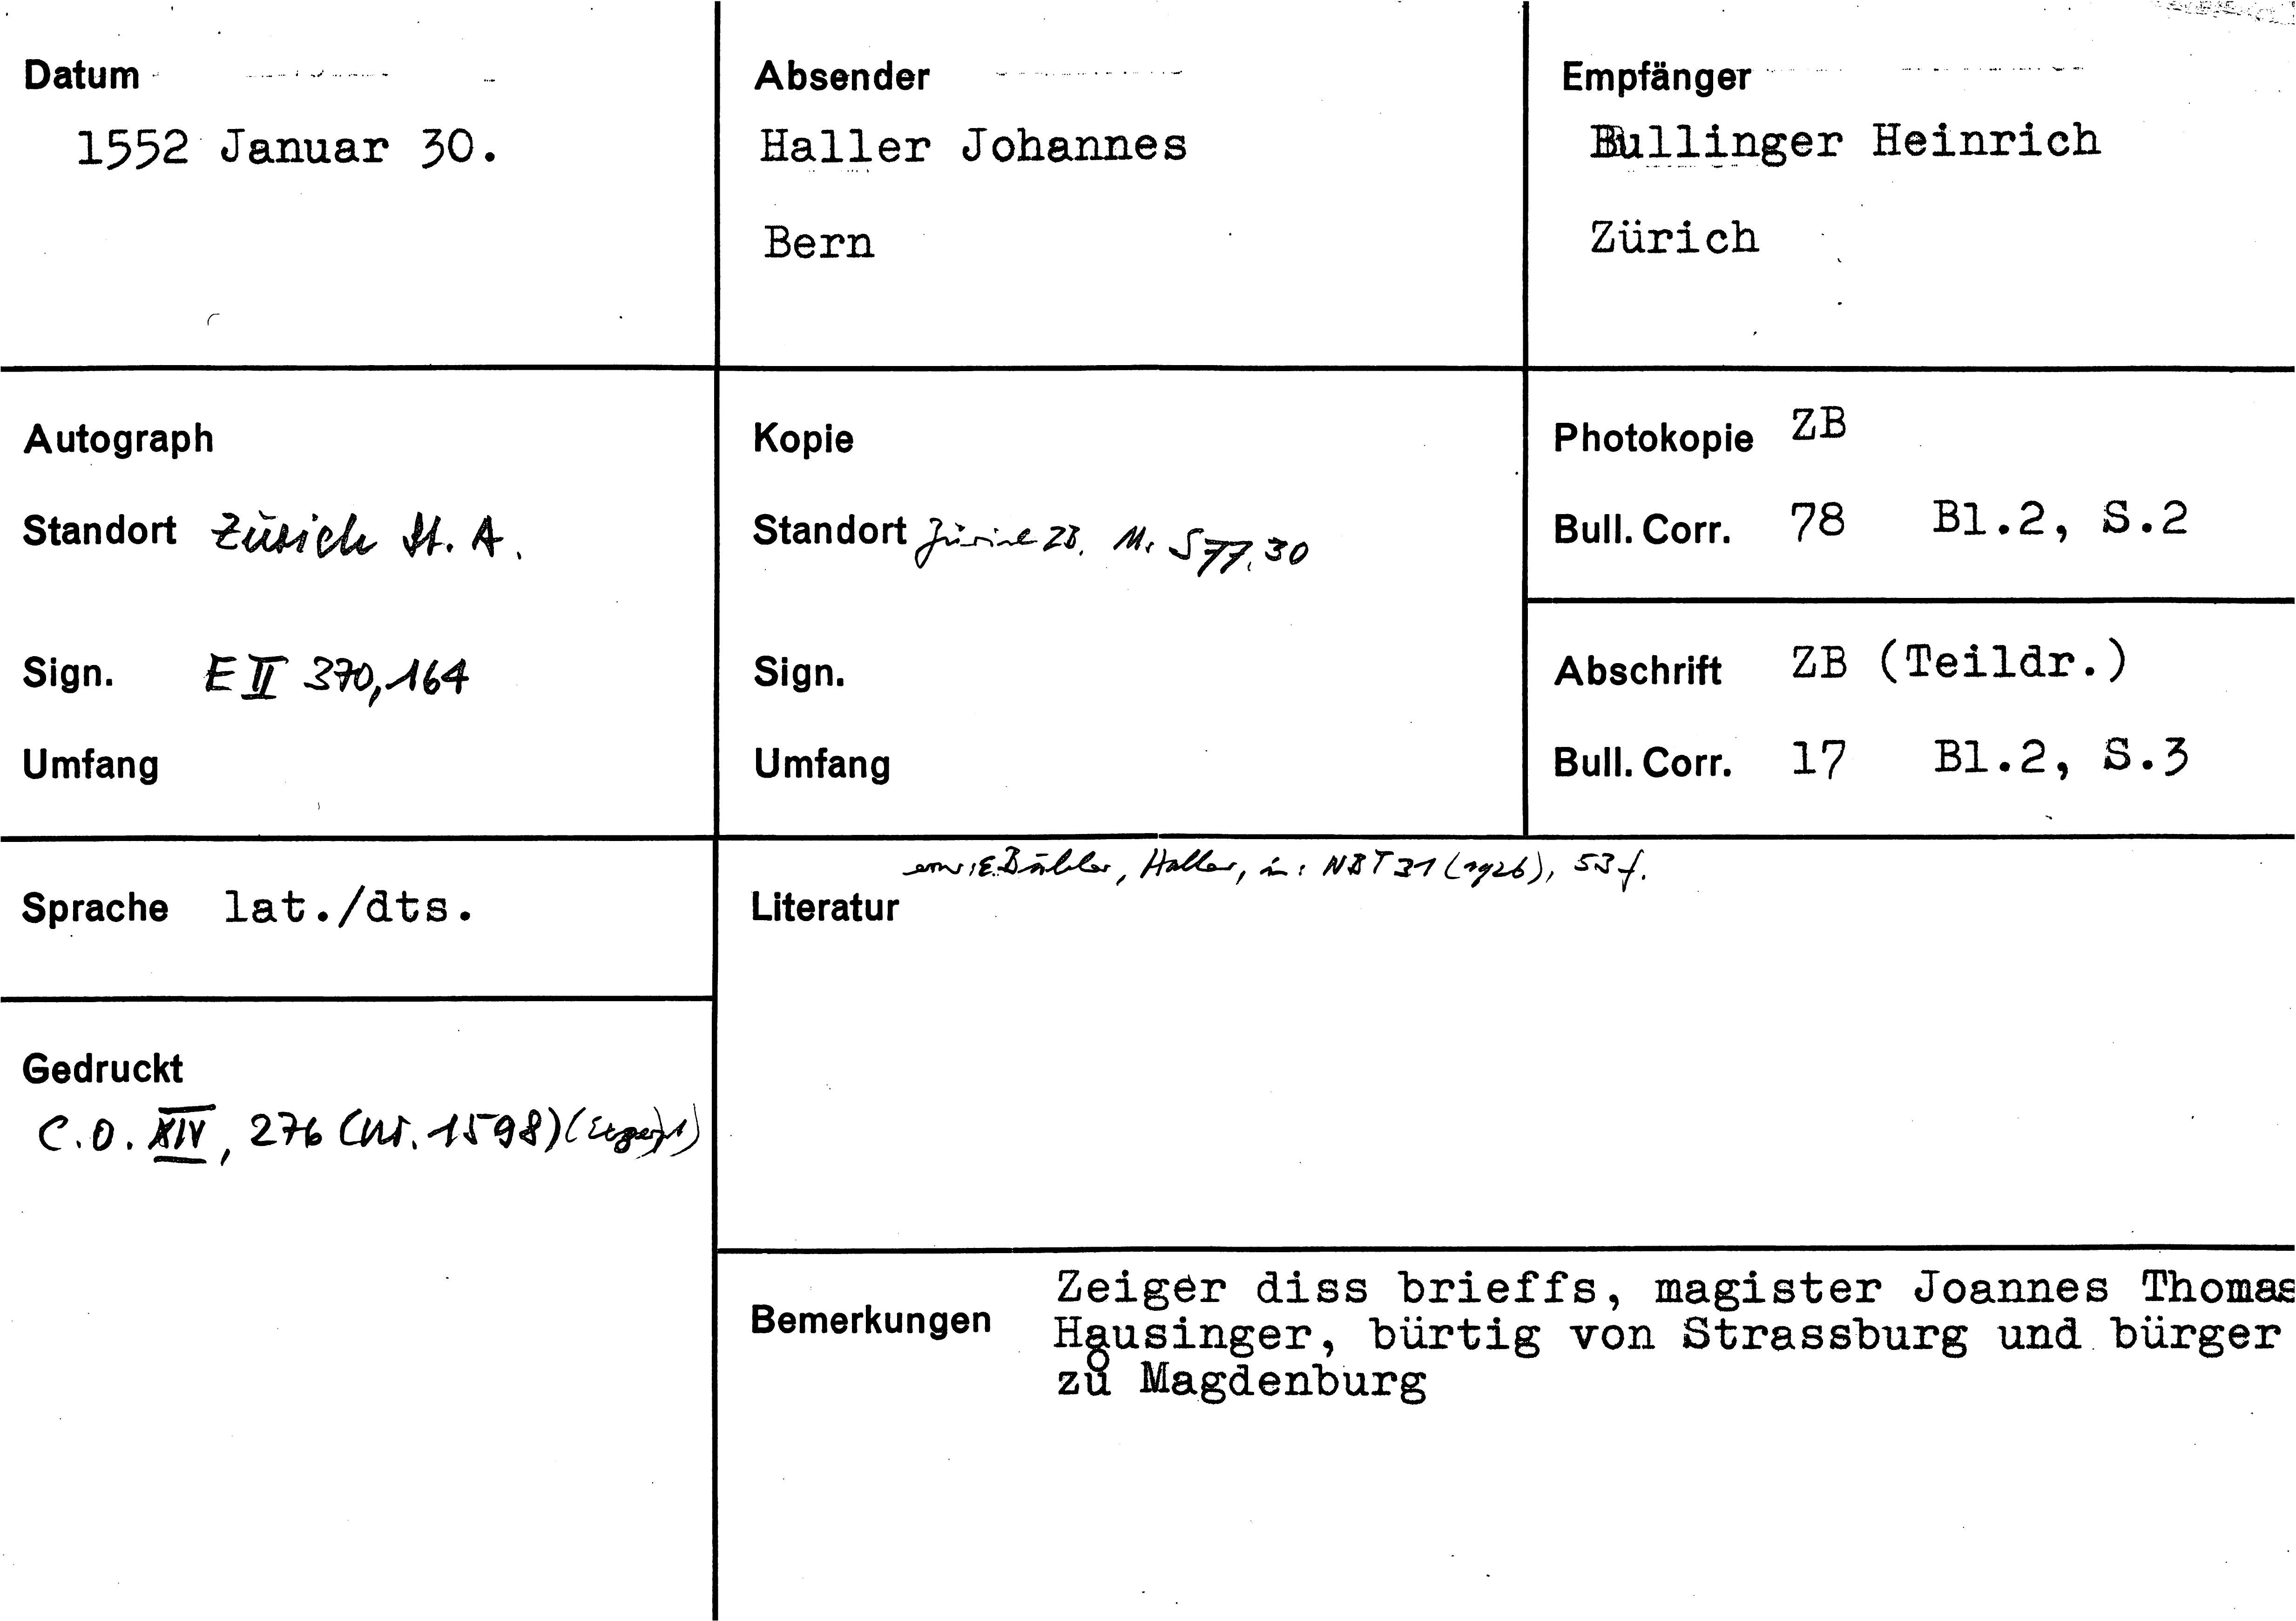 Datum
1552 Januar 30.
Absender
Haller Johannes
Bern
Empfänger
Bullinger Heinrich
Zürich
Autograph
Standort Zürich St. A.
Sign. E II 370,164
Umfang
Kopie
Standort Zürich ZB. Ms S 77, 30
Sign.
Umfang
Photokopie ZB
Bull. Corr. 78 Bl.2, S.2
Abschrift ZB (Teildr.)
Bull. Corr. 17 Bl.2, S.3
Sprache lat./dts.
Gedruckt
C.O. XIV, 276 (Nr. 1598)
erw.: E. Bähler, Haller, in: NBT 31 (1926), 53 f.
Literatur
Bemerkungen
Zeiger diss brieffs, magister Joannes Thomas
Hausinger, bürtig von Strassburg und bürger
zů Magdenburg